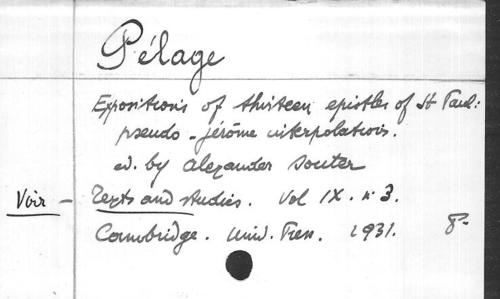 Pélage
Expositions of thirteen epistles of St Paul:
pseudo-jérôme interpolations.
ed. by Alexander Souter
Voir - Texts and studies. Vol IX. n. 3.
Cambridge. Univ. Press. 1931. 8°